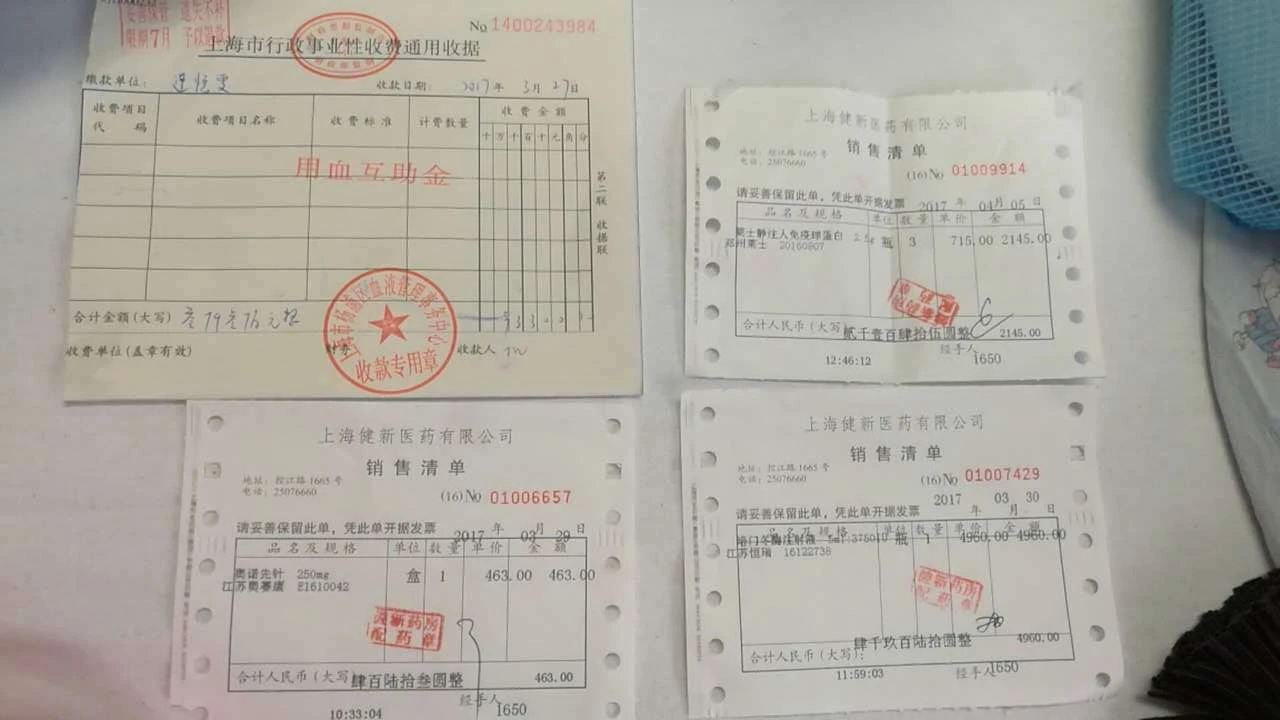 妥善保管 遗失不补
限期7月 予以退款
No 1400243984
上海市行政事业性收费通用收据
缴款单位：
收款日期： 2017年 3月27日
收费项目代码
收费项目名称
收费标准
计费数量
收费金额
十万千百十元角分
用血互助金
第二联 收据联
合计金额(大写)
收费单位(盖章有效)
财务
收款人
收款专用章
上海健新医药有限公司
销售清单
地址：控江路1665号
电话：25076660
(16)No 01009914
请妥善保留此单，凭此单开据发票 2017 年 04月 05日
品名及规格 单位 数量 单价 金额
莱士静注人免疫球蛋白 2.5g 瓶 3 715.00 2145.00
郑州莱士 20160807
合计人民币(大写 贰千壹百肆拾伍圆整 2145.00
12:46:12
经手人
1650
上海健新医药有限公司
销售清单
地址：控江路1665号
电话：25076660
(16)No 01006657
请妥善保留此单，凭此单开据发票
2017 年 03 月 29 日
品名及规格 单位 数量 单价 金额
奥诺先针 250mg 盒 1 463.00 463.00
江苏奥赛康 E1610042
健新药房
配药章
合计人民币(大写 肆百陆拾叁圆整 463.00
经手人
10:33:04
1650
上海健新医药有限公司
销售清单
地址：控江路1665号
电话：25076660
(16)No 01007429
2017 03 30
请妥善保留此单，凭此单开据发票 年 月 日
品名及规格 单位 数量 单价 金额
门冬酶注射液 5ml:3750IU 瓶 1 4960.00 4960.00
江苏恒瑞 16122738
健新药房
配药章
肆千玖百陆拾圆整 4960.00
合计人民币(大写)：
11:59:03
经手人
1650